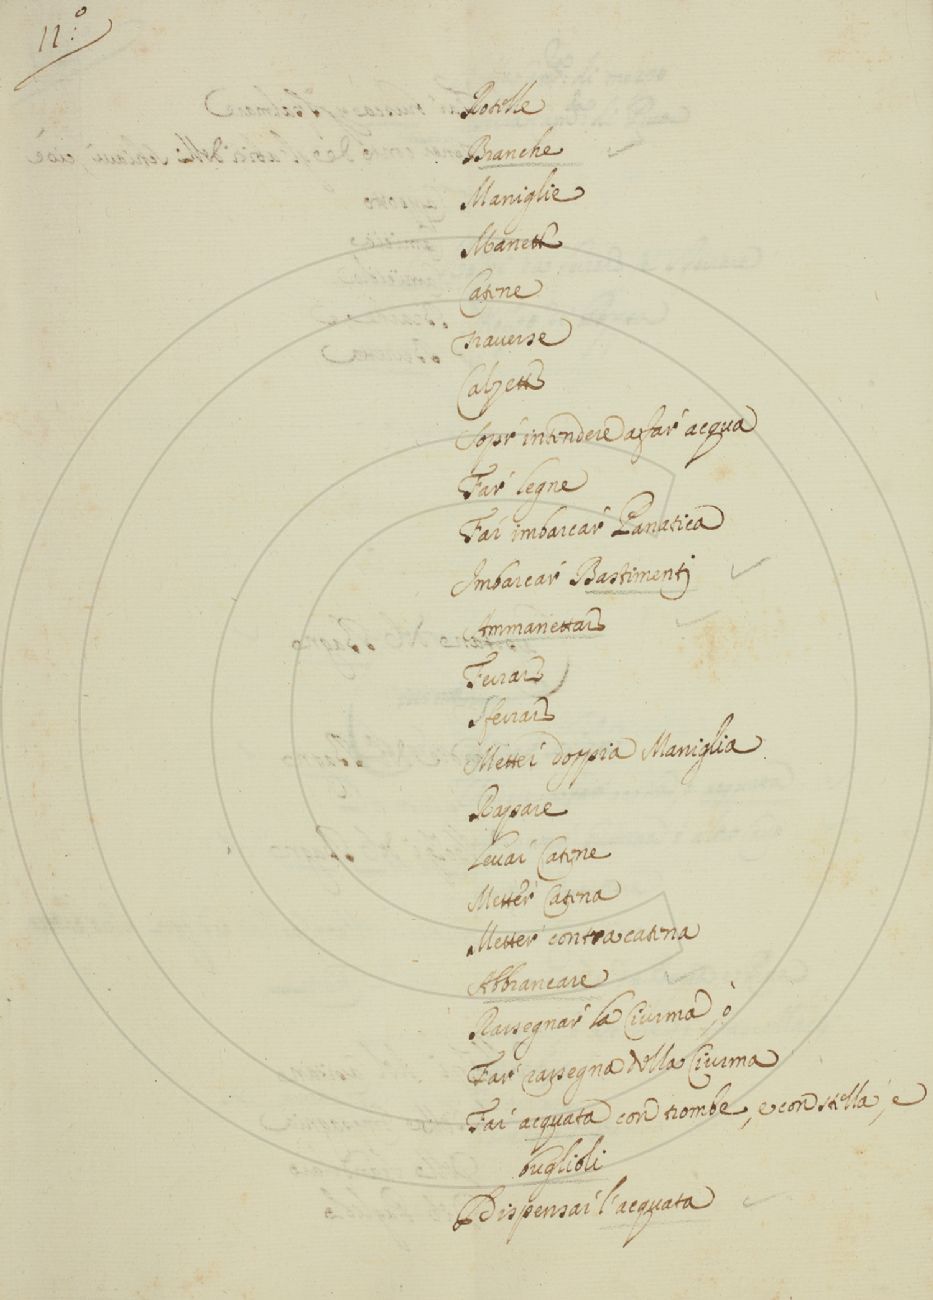 11:o
Rotelle
Branche
Maniglie
Manette
Catene
Trauerse
Calzette
Sopr' intendere a far' acqua
Far' legne
Far imbarcar' Panatica
Imbarcar' Bastimenti
Ammanettare
Ferrare
Sferrare
Metter doppia Maniglia
Rapare
Leuar Catene
Metter Catena
Metter' contracatena
Abbrancare
Rassegnar' la Ciurma, ò
Far' rassegna della Ciurma
Far acquata con trombe, e con stella, e
buglioli
Dispensar l'acquata